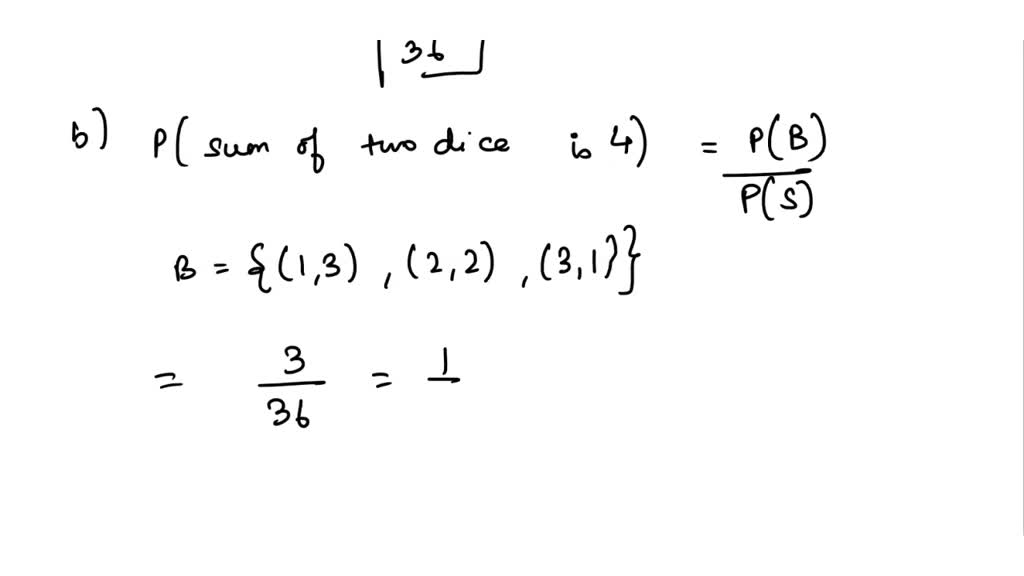 36
b) P( sum of two dice is 4) = P(B) / P(S)
B = {(1,3) , (2,2) , (3,1)}
= 3/36 = 1/